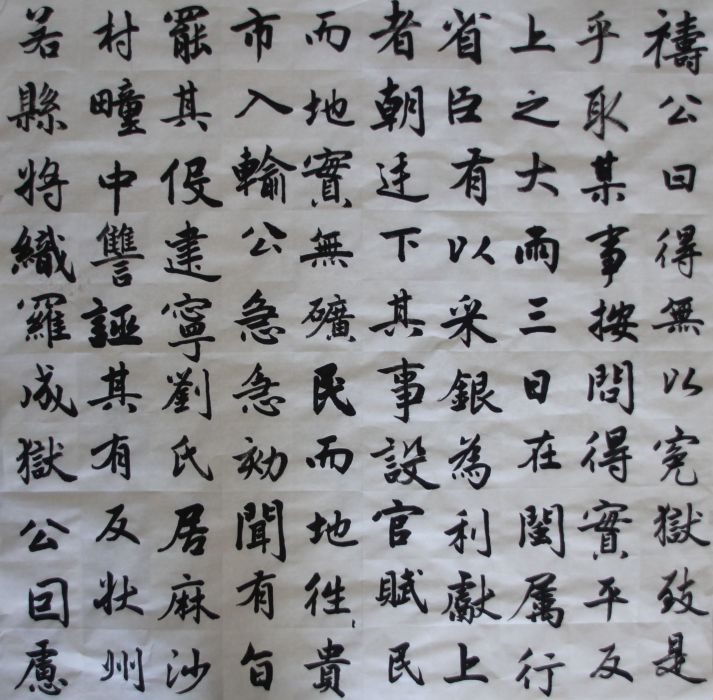 禱公曰得無以寃獄致是
乎取某事按問得實平反
上之大雨三日在閩属行
省臣有以采銀為利獻上
者朝廷下其事設官賦民
而地實無礦民而地徃貴
市入輸公急急劾聞有旨
罷其侵建寧劉氏居麻沙
村疃中讐誣其有反狀州
若縣将織羅成獄公囙慮